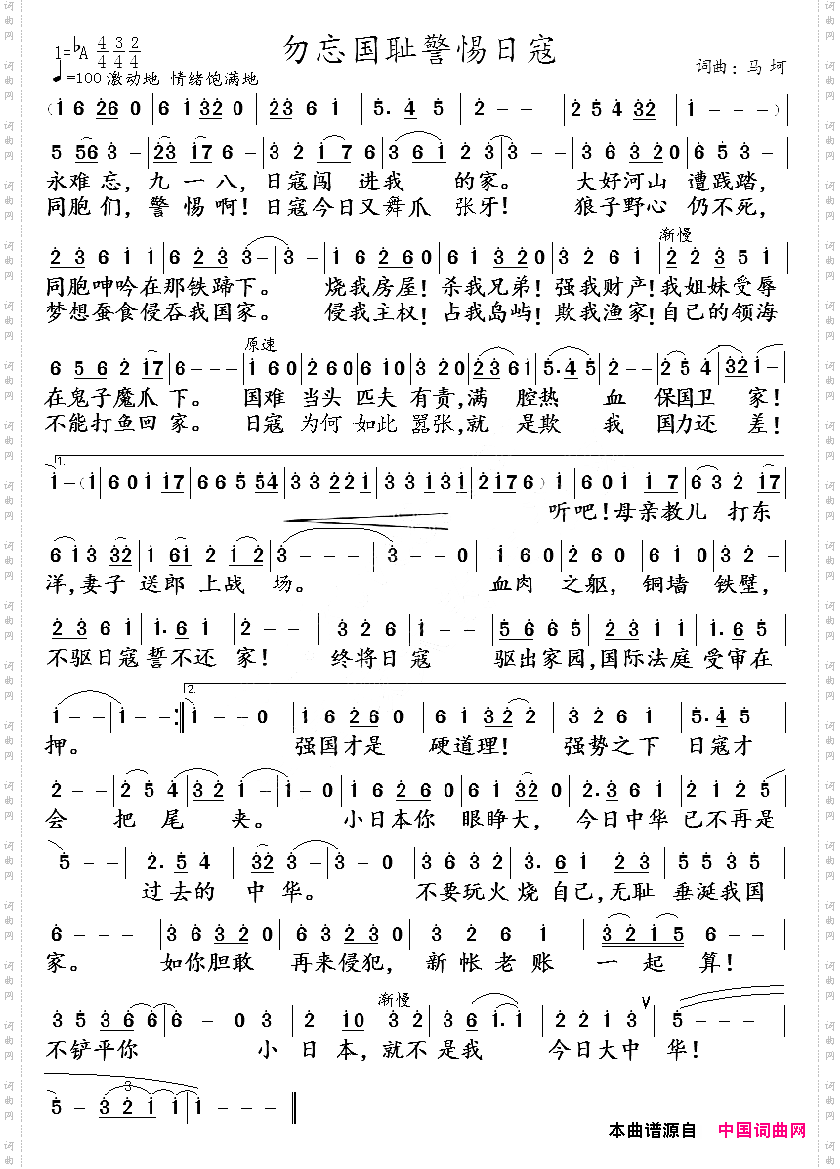 勿忘国耻警惕日寇
1=♭A 4/4 3/4 2/4
♩=100 激动地 情绪饱满地
词曲：马 坷
永难忘，九一八，日寇闯 进我 的家。 大好河山 遭践踏，
同胞们，警惕啊！日寇今日又舞爪 张牙！ 狼子野心 仍不死，
渐慢
同胞呻吟在那铁蹄下。 烧我房屋！杀我兄弟！强我财产！我姐妹受辱
梦想蚕食侵吞我国家。 侵我主权！占我岛屿！欺我渔家！自己的领海
原速
在鬼子魔爪 下。 国难 当头 匹夫 有责，满 腔热 血 保国卫 家！
不能打鱼回 家。 日寇 为何 如此 嚣张，就 是欺 我 国力还 差！
1.
听吧！母亲教儿 打东
洋，妻子 送郎 上战 场。 血肉 之躯，铜墙 铁壁，
不驱日寇 誓不还 家！ 终将日寇 驱出家园，国际法庭 受审在
2.
押。 强国才是 硬道理！ 强势之下 日寇才
会 把 尾 夹。 小日本你 眼睁大， 今日中华 已不再是
过去的 中 华。 不要玩火 烧 自己，无耻 垂涎我国
家。 如你胆敢 再来侵犯， 新 帐 老 账 一 起 算！
渐慢
不铲平你 小 日 本，就不 是我 今日大中 华！
3
本曲谱源自 中国词曲网